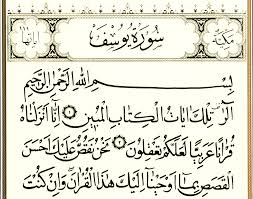 مكية سورة يوسف آياتها
بسم الله الرحمن الرحيم
الر تلك آيات الكتاب المبين ۝ إنا أنزلناه
قرآنا عربيا لعلكم تعقلون ۝ نحن نقص عليك أحسن
القصص بما أوحينا إليك هذا القرآن وإن كنت